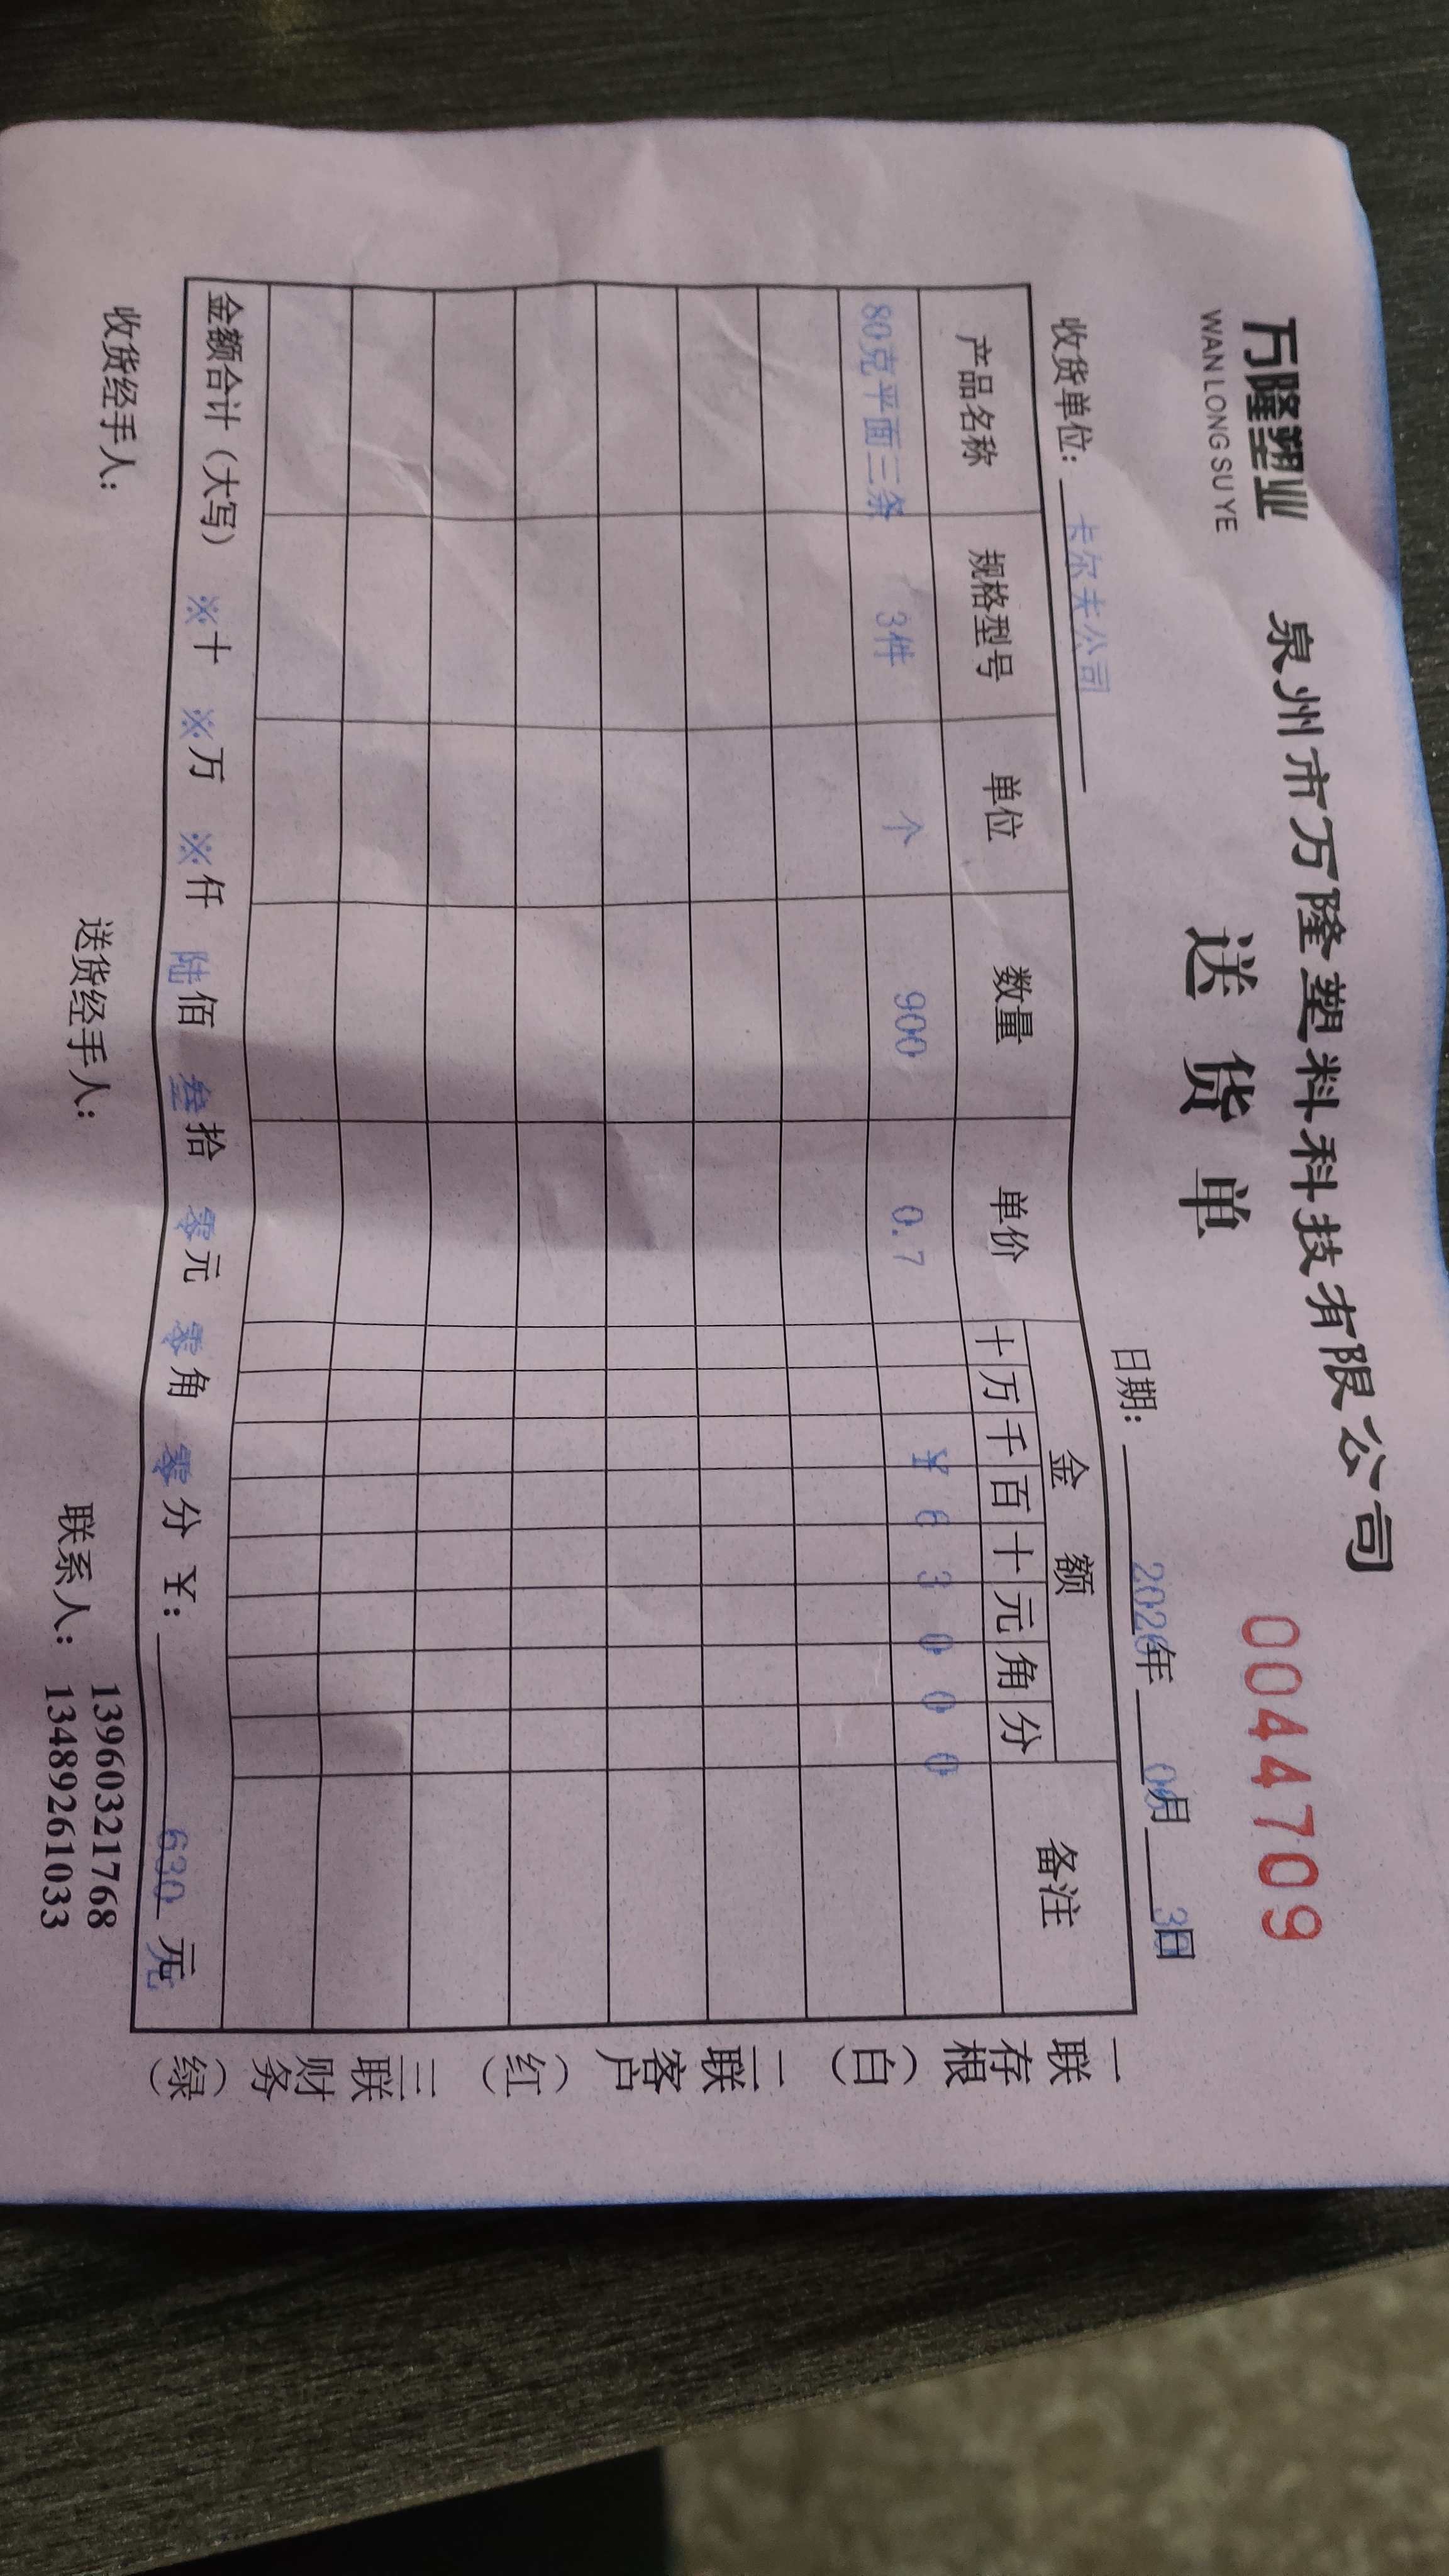 万隆塑业
WAN LONG SU YE
泉州市万隆塑料科技有限公司
送货单
0044709
收货单位: 卡尔夫公司
日期: 年 月 日
产品名称 规格型号 单位 数量 单价 金额 备注
十 万 千 百 十 元 角 分
80克平面三条 3件 个 900 0.7 ¥ 6 3 0 0 0
金额合计(大写) ※十 ※万 ※仟 陆佰 叁拾 零元 零角 零分 ¥: 630 元
收货经手人:
送货经手人:
联系人: 13960321768
13489261033
一联存根(白) 二联客户(红) 三联财务(绿)